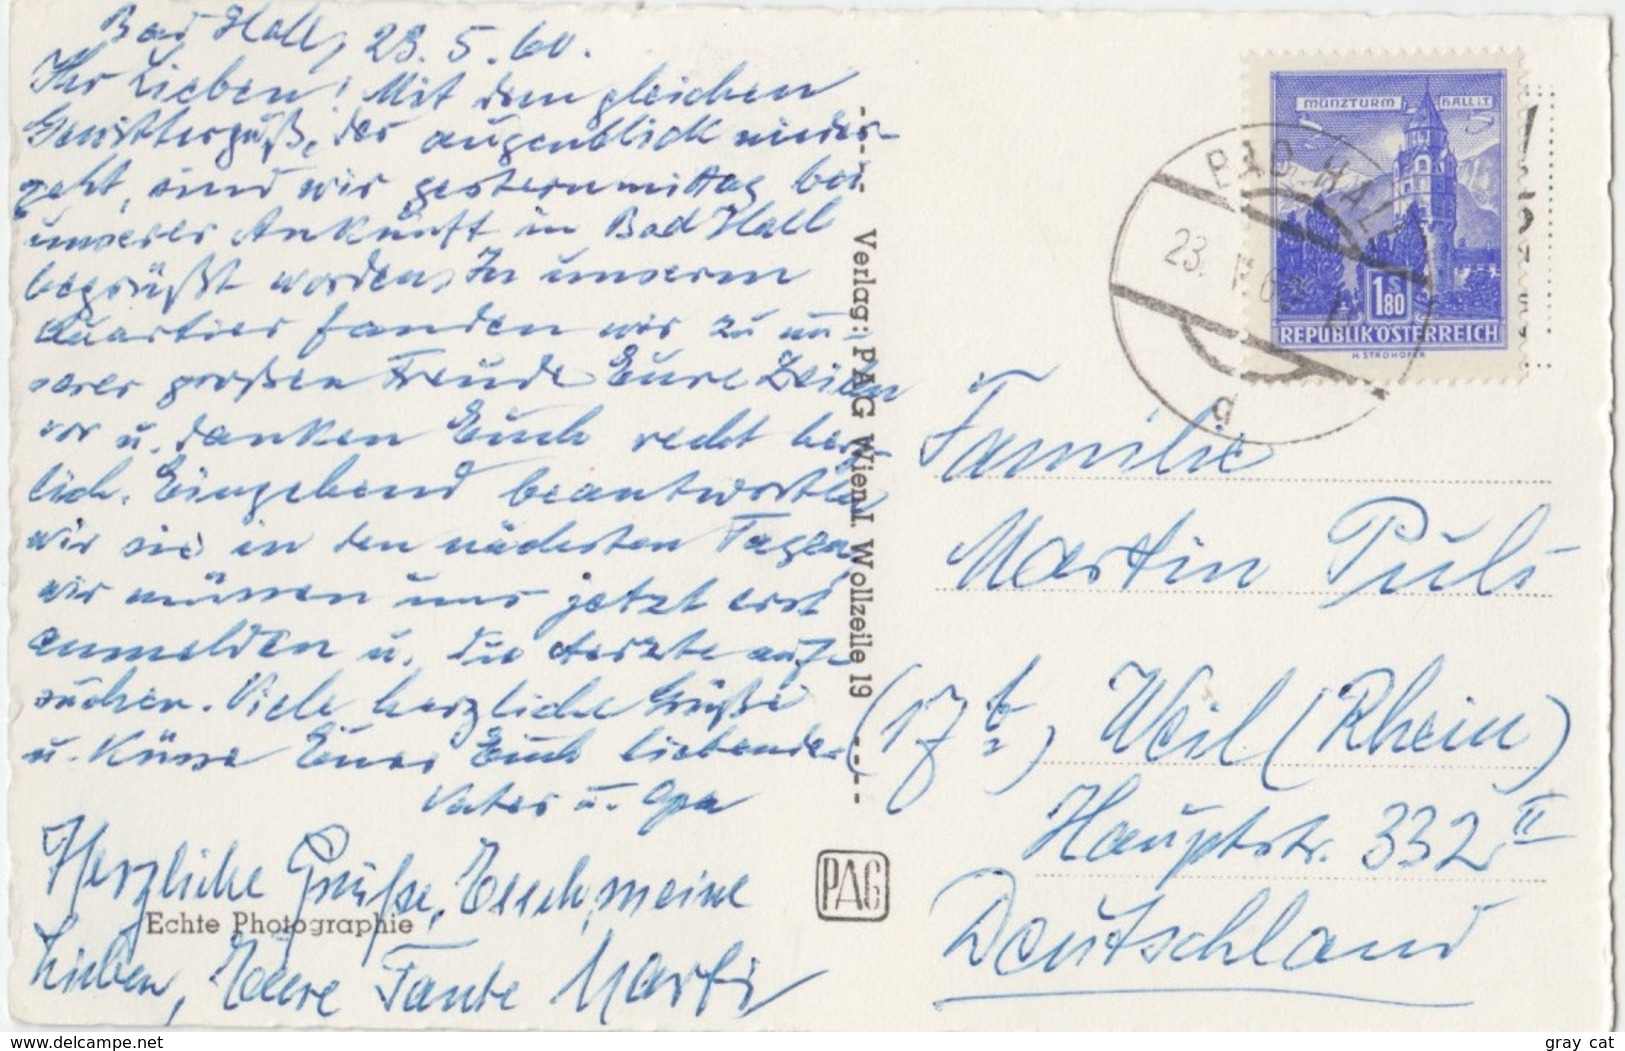 Bad Hall, 23.5.60.
Ihr Lieben! Mit dem gleichen
Gewitterguß, der augenblick nieder-
geht, sind wir gesternmittag bei
unserer Ankunft in Bad Hall
begrüßt worden. In unserm
Quartier fanden wir zu un-
serer großen Freude Eure Zeilen
vor u. danken Euch recht herz-
lich. Eingehend beantworten
wir sie in den nächsten Tagen,
wir müssen uns jetzt erst
anmelden u. die Aerzte auf-
suchen. Viele herzliche Grüße
u. Küsse Euer Euch liebender
Vater u. Opa
Herzliche Grüße, Euch, meine
Lieben, Eure Tante
Echte Photographie
Verlag: PAG Wien I. Wollzeile 19
PAG
MÜNZTURM HALL i.T.
S
1.80
REPUBLIK ÖSTERREICH
H. STROHOFER
BAD HALL
23. V. 60
d
Familie
Martin Puls
(17b) Weil (Rhein)
Hauptstr. 332 II
Deutschland
www.delcampe.net
gray cat